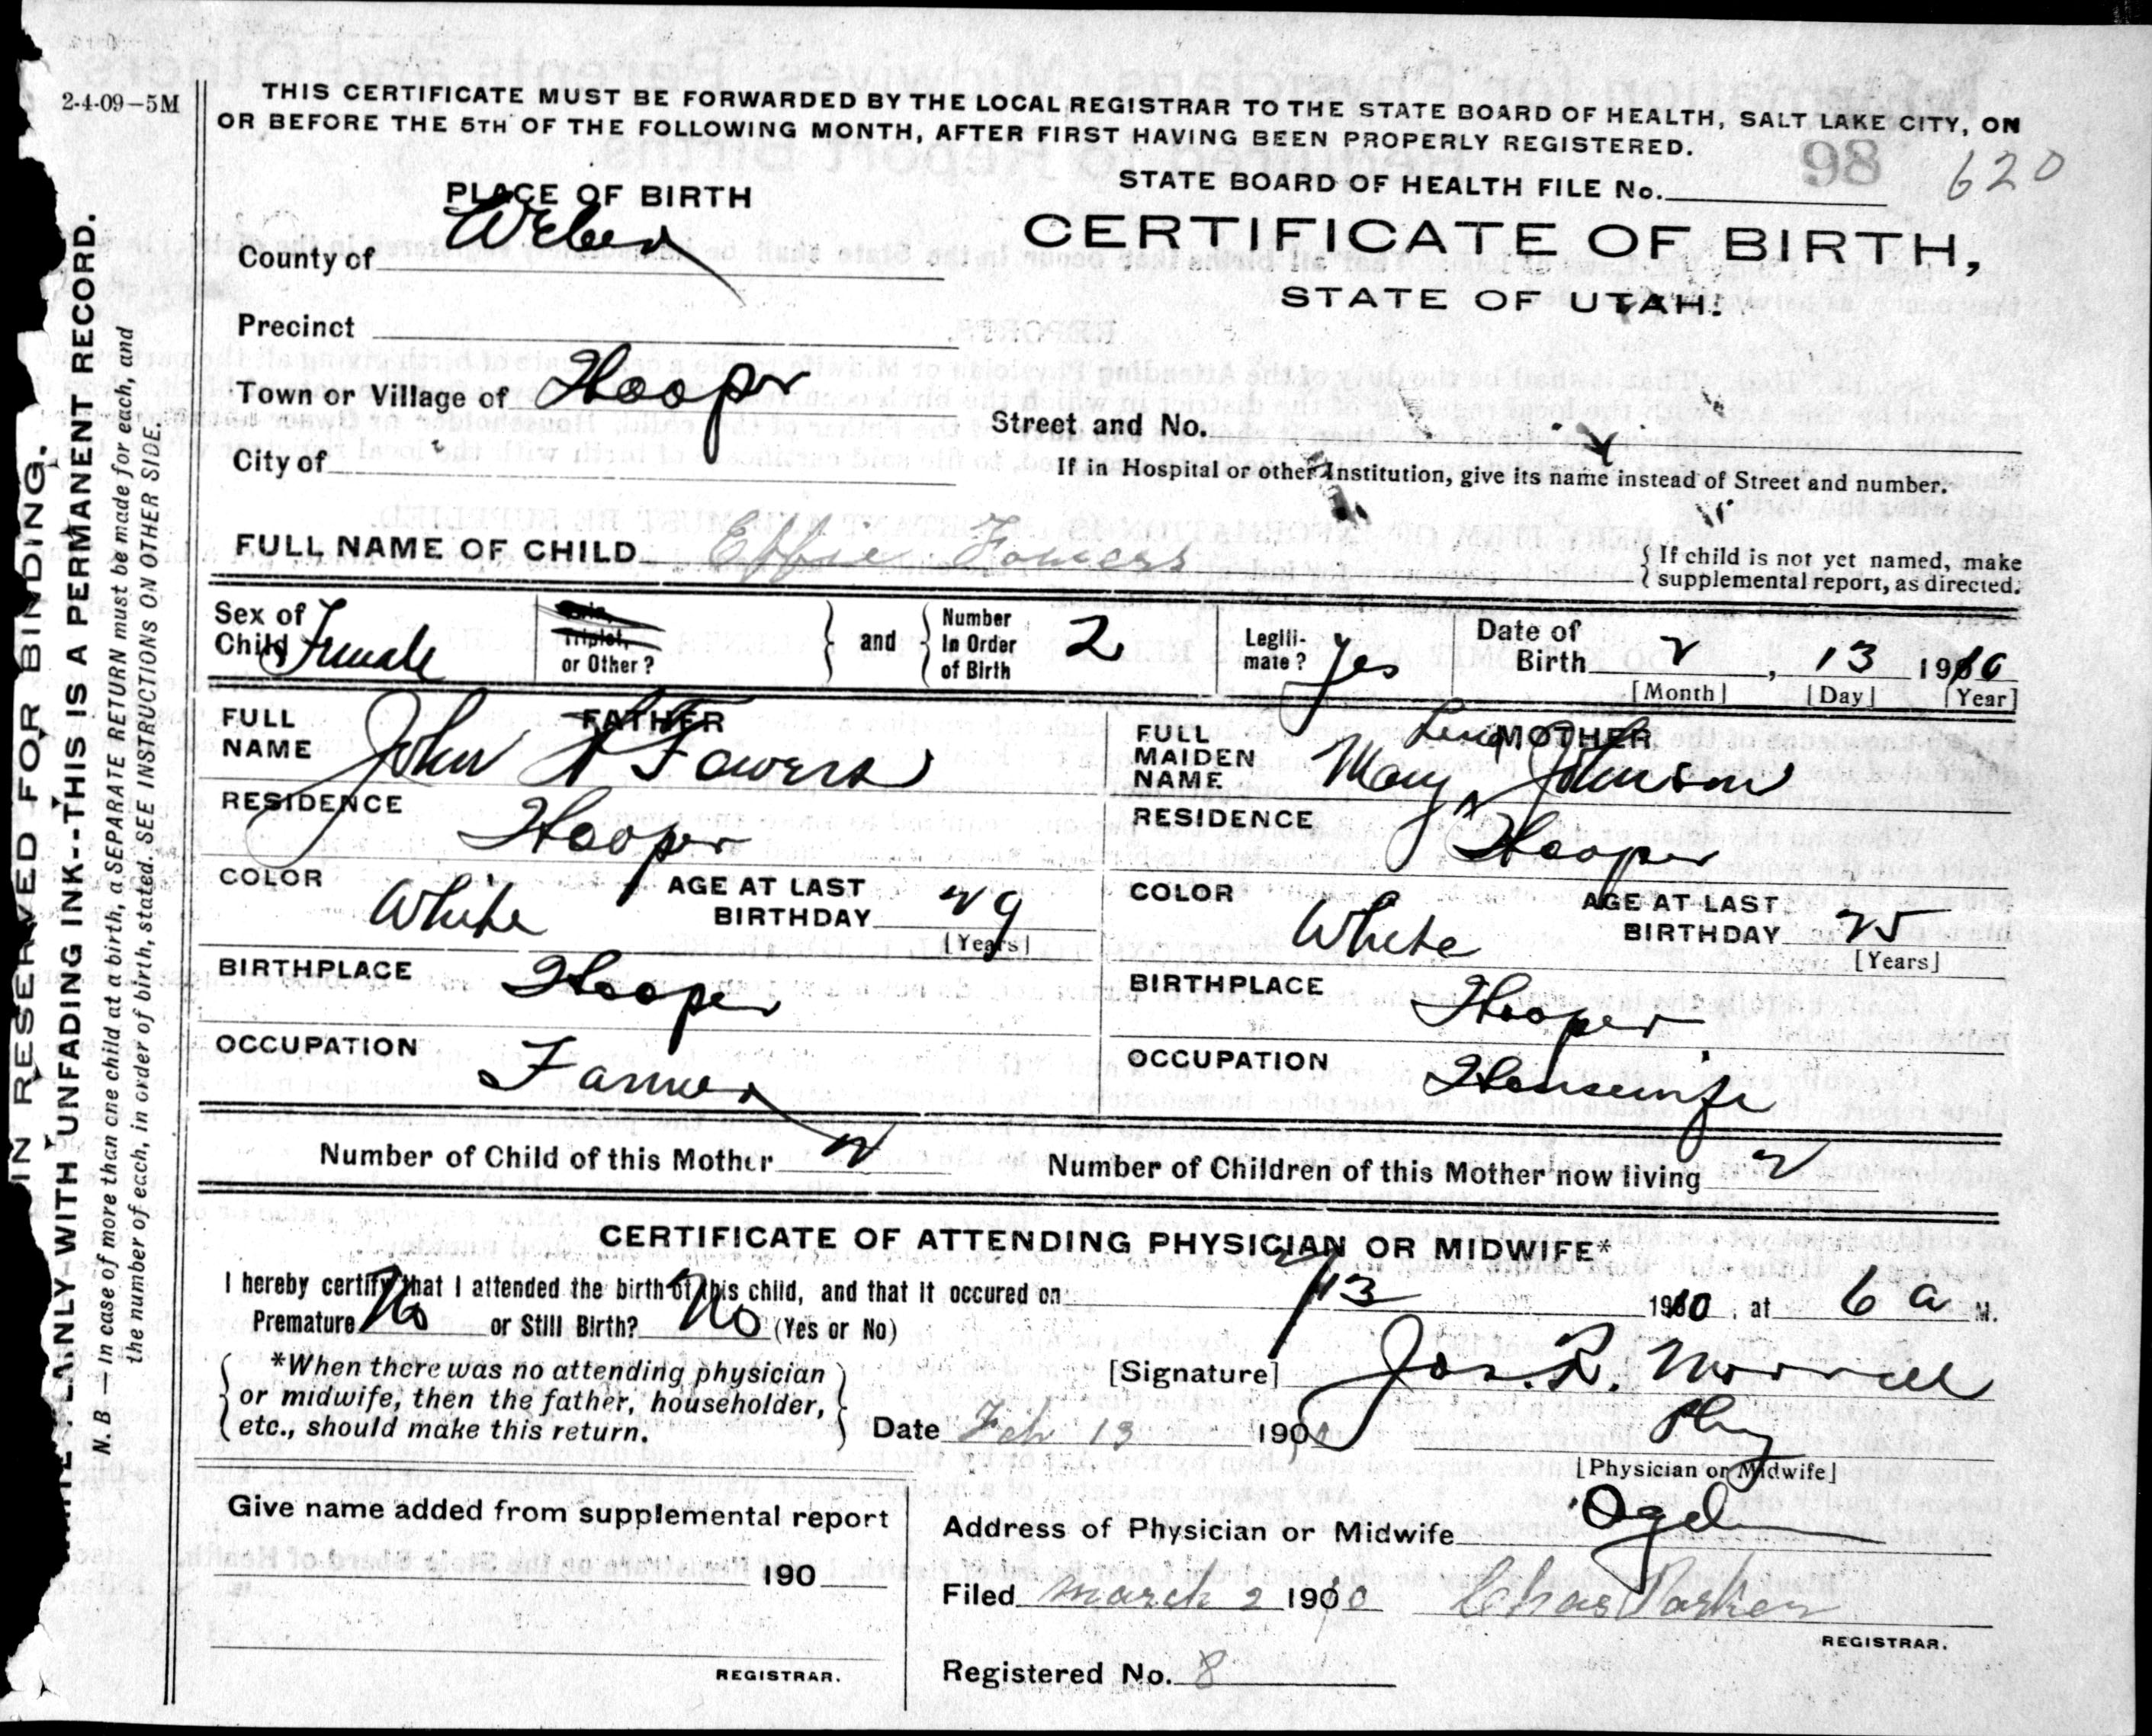 2-4-09-5M
THIS CERTIFICATE MUST BE FORWARDED BY THE LOCAL REGISTRAR TO THE STATE BOARD OF HEALTH, SALT LAKE CITY, ON
OR BEFORE THE 5TH OF THE FOLLOWING MONTH, AFTER FIRST HAVING BEEN PROPERLY REGISTERED.
98 620
STATE BOARD OF HEALTH FILE No.
PLACE OF BIRTH
CERTIFICATE OF BIRTH,
STATE OF UTAH.
County of Weber
Precinct
Town or Village of Hooper
Street and No.
City of
If in Hospital or other Institution, give its name instead of Street and number.
FULL NAME OF CHILD Effie Fowers
{ If child is not yet named, make
supplemental report, as directed.
Sex of Child Female
Twin, Triplet, or Other?
and
Number in Order of Birth 2
Legiti-mate? Yes
Date of Birth 2, 13 1910
[Month] [Day] [Year]
FATHER
FULL NAME John F Fowers
MOTHER
FULL MAIDEN NAME Mary Johnson
RESIDENCE Hooper
RESIDENCE Hooper
COLOR White AGE AT LAST BIRTHDAY 29 [Years]
COLOR White AGE AT LAST BIRTHDAY 25 [Years]
BIRTHPLACE Hooper
BIRTHPLACE Hooper
OCCUPATION Farmer
OCCUPATION Housewife
Number of Child of this Mother 2
Number of Children of this Mother now living 2
CERTIFICATE OF ATTENDING PHYSICIAN OR MIDWIFE*
I hereby certify that I attended the birth of this child, and that it occured on 2/13 1910, at 6 a M.
Premature No or Still Birth? No (Yes or No)
*When there was no attending physician
or midwife, then the father, householder,
etc., should make this return.
[Signature] Jos. R. Morrell
Date Feb 13 1910
Phy
[Physician or Midwife]
Give name added from supplemental report
190
REGISTRAR.
Address of Physician or Midwife Ogden
Filed March 2 1910 Chas Parker
REGISTRAR.
Registered No. 8
IN RESERVED FOR BINDING.
PLAINLY WITH UNFADING INK--THIS IS A PERMANENT RECORD.
N.B—In case of more than one child at a birth, a SEPARATE RETURN must be made for each, and
the number of each, in order of birth, stated. SEE INSTRUCTIONS ON OTHER SIDE.